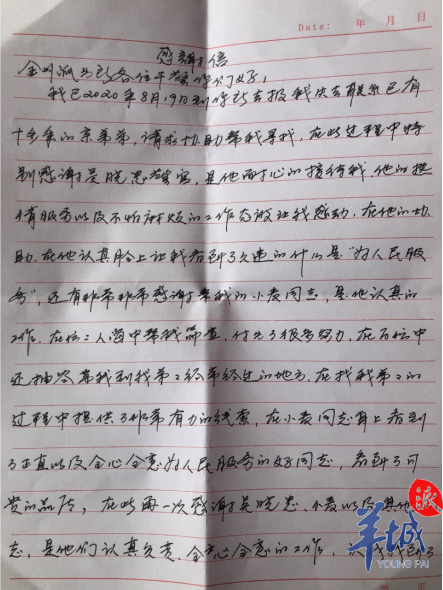 Date: 年 月 日
感謝信
金州派出所各位干警你们好！
我已2020年8月19日到你所去报我失去联系已有
十多年的亲弟弟，请求协助帮我寻找，在此过程中特
别感谢吴晓忠警官，是他耐心的接待我，他的热
情服务以及不怕麻烦的工作态度让我感动，在他的协
助，在他认真脸上让我看到了久违的什么是"为人民服
务"，还有非常非常感谢帮我的小麦同志，是他认真的
工作，在 人海中帮我筛查，付出了很多努力，在百忙中
还抽空带我到我弟 经年经过的地方，在找我弟 的
过程中提供了非常有力的线索，在小麦同志身上看到
了正直以及全心全意为人民服务的好同志，看到了可
贵的品质，在此再一次感谢吴晓忠、小麦以及其他
志，是他们认真负责、全心全意的工作，
羊城
派
YOUNG PAI
第 页